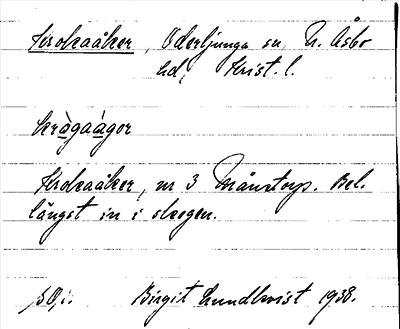 Krokaåker, Oderljunga sn, N. Åsbo
hd, Krist. l.
kràgaàgor
Krokaåker, nr 3 Månstorp. Bel.
längst in i skogen.
Birgit Lundkvist 1938.